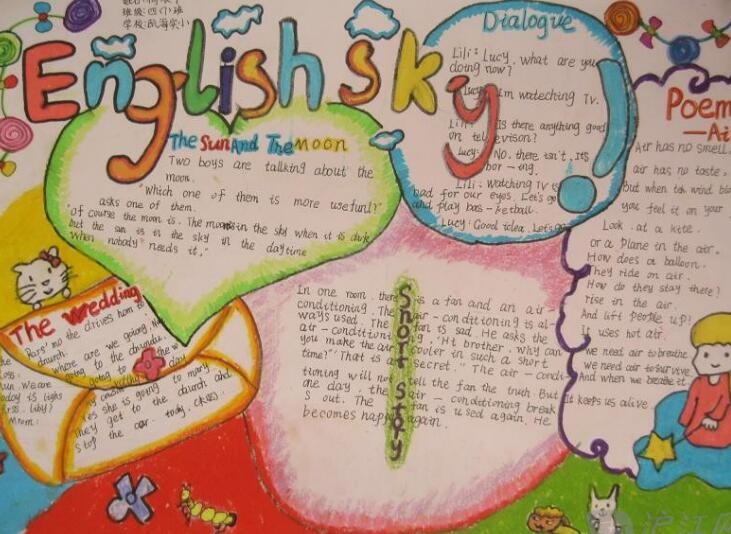 班级:四(1)班
English sky!
The Sun And The Moon
Two boys are tallking about the
moon.
"Which one of them is more usefunl?"
asks one of them.
"of course the moon is. The moon is in the sky when it is dark
but the sun is in the sky in the daytime
when nobody needs it."
Dialogue
Lili: Lucy, what are you
doing now?
Lucy: I'm wateching Tv.
Lili: Is there anything good
on television?
Lucy: No. there isn't. It's
bor-ing.
Lili: watching TV is
bad for our eyes. Let's go
and play bas-ketball.
Lucy: Good idea. Let's go
Poem
—Ai
Air has no smell.
air has no taste.
But when the wind
you feel it on your
Look at a kite.
or a Plane in the air.
How does a balloon.
They ride on air.
How do they stay there?
rise in the air.
And lift people up?
It uses hot air.
we need air to breathe
we need air to survive
And when we breathe it.
It keeps us alive.
The wedding
drives
church.
whose are we going
going to the
going to
she is going to marry
They get to the church and
stop the car. today.
Short story
In one room, there is a fan and an air-
conditioning. The air-conditioning is al-
ways used. The fan is sad. He asks the
air-conditioning, "Hi brother, why can
you make the air cooler in such a short
time?" "That is a secret." The air-condi
tioning will not tell the fan the truth. But
one day, the air-conditioning break
s out. The fan is used again. He
becomes happy again.
沪江